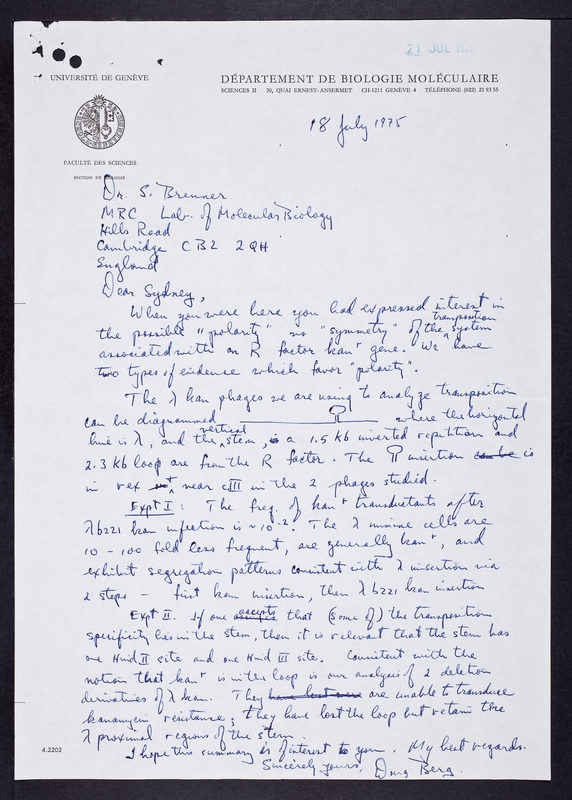 21 JUL 1975
UNIVERSITÉ DE GENÈVE
DÉPARTEMENT DE BIOLOGIE MOLÉCULAIRE
SCIENCES II 30, QUAI ERNEST-ANSERMET CH-1211 GENÈVE 4 TÉLÉPHONE (022) 21 93 55
18 July 1975
FACULTÉ DES SCIENCES
SECTION DE BIOLOGIE
Dr. S. Brenner
MRC Lab. of Molecular Biology
Hills Road
Cambridge CB2 2QH
England
Dear Sydney,
When you were here you had expressed interest in
the possible "polarity" vs "symmetry" of the transposition system
associated with an R factor kanʳ gene. We have
two types of evidence which favor "polarity".
The λ kan phages we are using to analyze transposition
can be diagrammed where the horizontal
line is λ, and the vertical stem, is a 1.5 kb inverted repetition and
2.3 Kb loop are from the R factor. The insertion can be is
in rex near cIII in the 2 phages studied.
Expt I: The freq. of kanʳ transductants after
λb221 kan infection is ~10⁻². The λ immune cells are
10 - 100 fold less frequent, are generally kanʳ, and
exhibit segregation patterns consistent with λ insertion via
2 steps - first kan insertion, then λ b221 kan insertion
Expt II. If one accepts that (some of) the transposition
specificity lies in the stem, then it is relevant that the stem has
one Hind II site and one Hind III site. Consistent with the
notion that kanʳ is in the loop is our analysis of 2 deletion
derivatives of λ kan. They have lost are unable to transduce
kanamycin resistance; they have lost the loop but retain the
λ proximal regions of the stem.
I hope this summary is of interest to you. My best regards.
Sincerely yours, Doug Berg.
4.2202